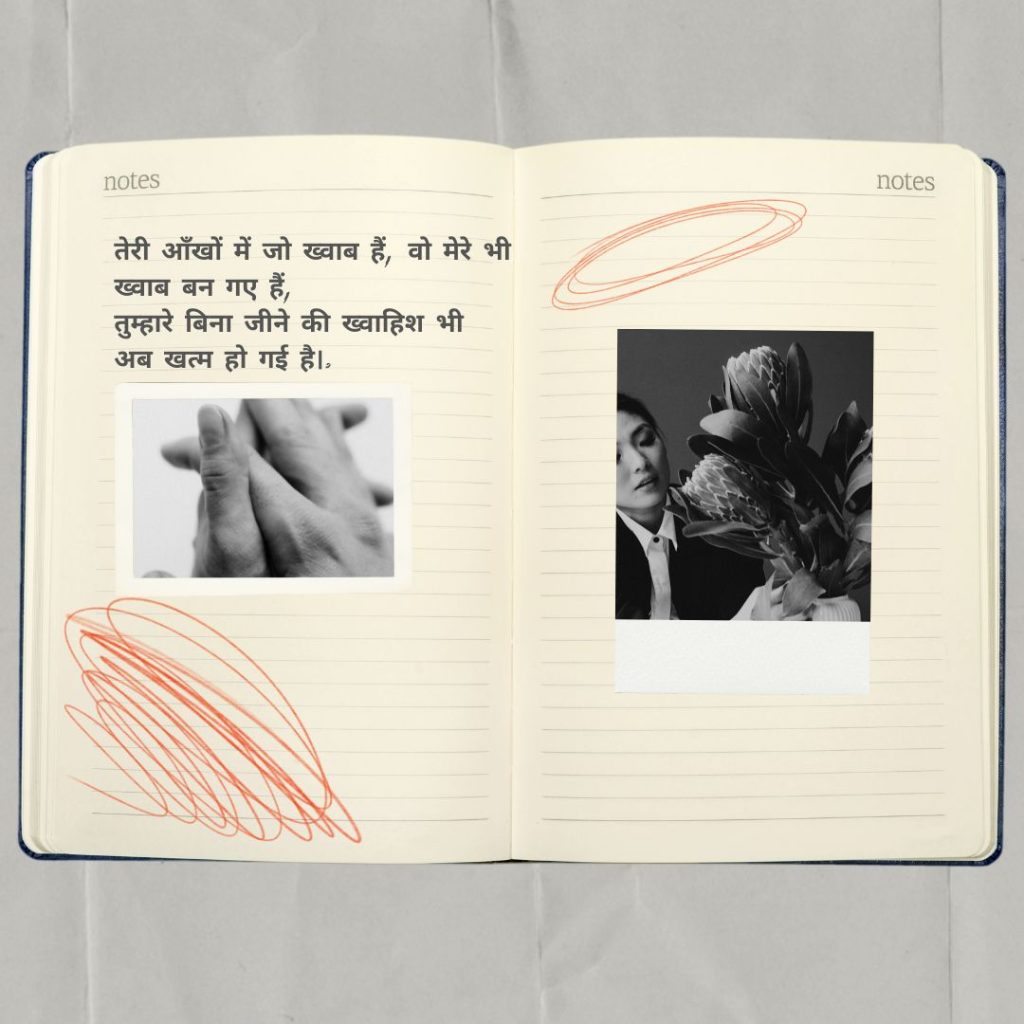 notes
notes
तेरी आँखों में जो ख्वाब हैं, वो मेरे भी
ख्वाब बन गए हैं,
तुम्हारे बिना जीने की ख्वाहिश भी
अब खत्म हो गई है।.